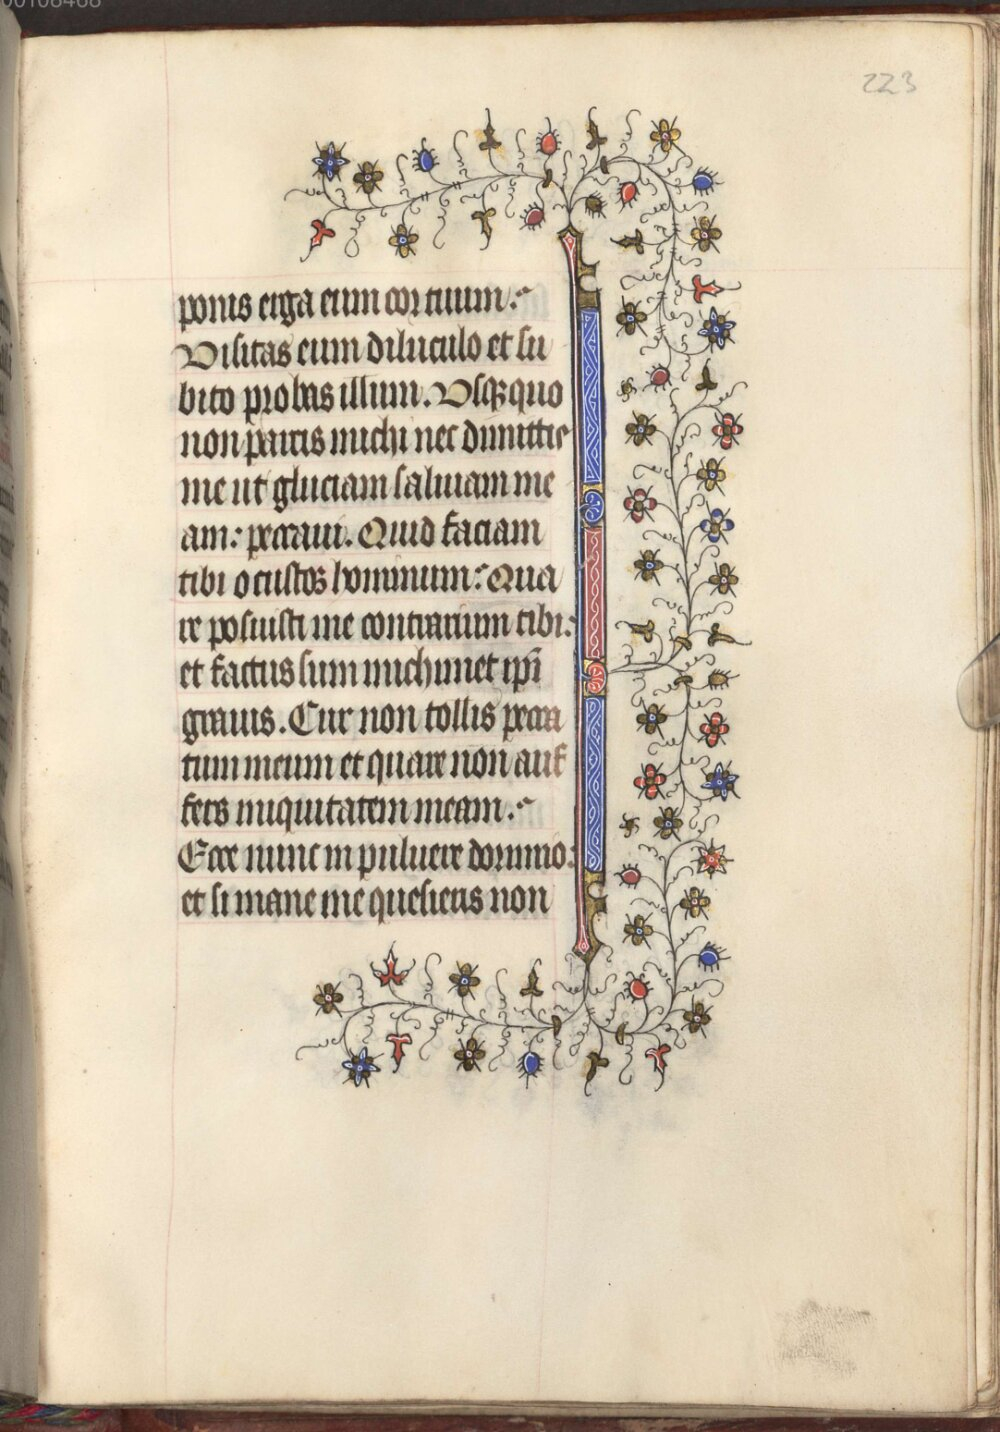 00108488
223
ponis erga eum cor tuum.
Visitas eum diluculo et su
bito probas illum. Vsqꝫ quo
non parcis michi nec dimittis
me ut gluciam saliuam me
am: peccaui. Quid faciam
tibi o custos hominum: Qua
re posuisti me contrarium tibi:
et factus sum michimet ip̅i
grauis. Cur non tollis pecca
tum meum et quare non auf
fers iniquitatem meam.
Ecce nunc in puluere dormio:
et si mane me quesieris non